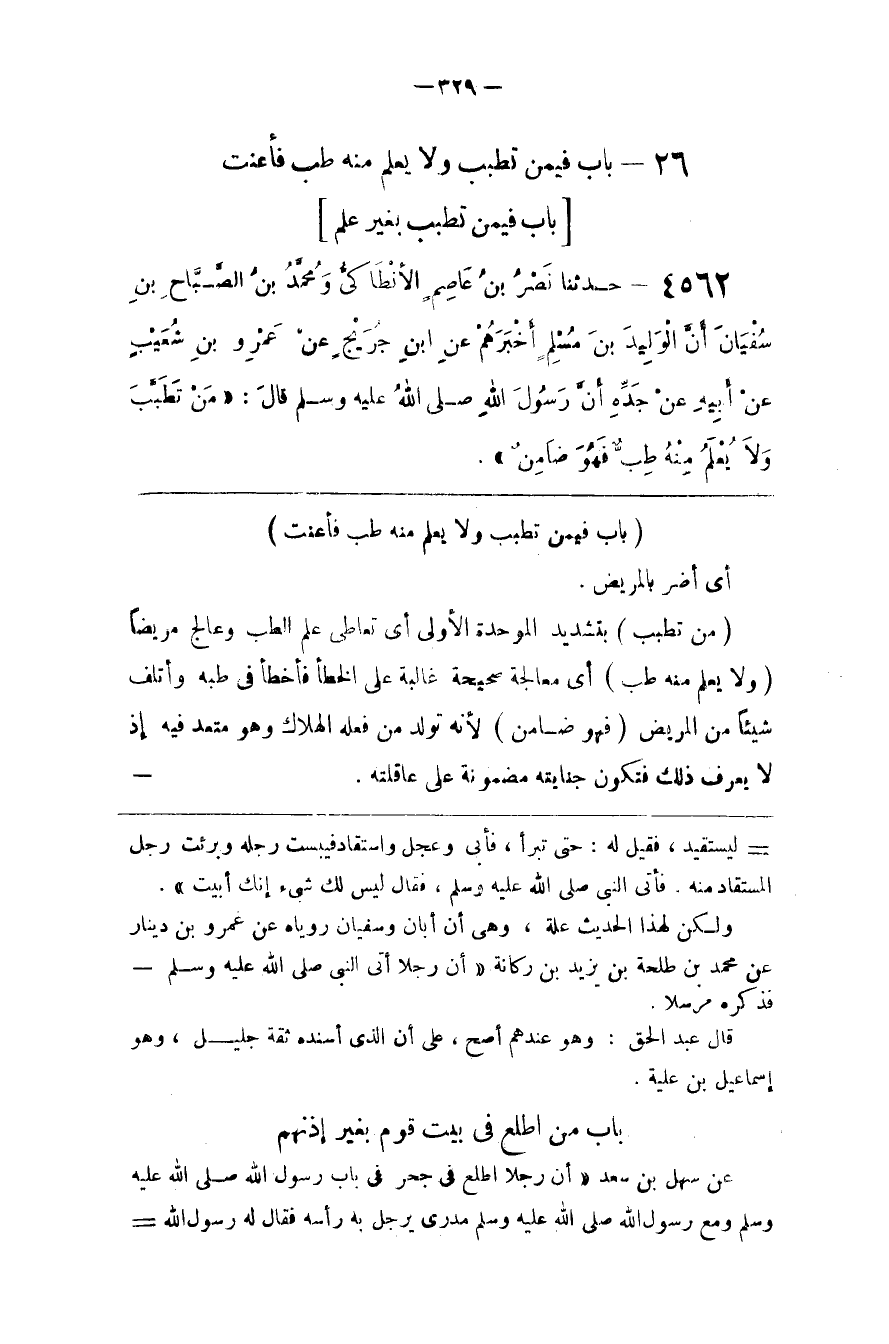 — ٣٢٩ —
٢٦ — باب فيمن تطبب ولا يعلم منه طب فأعنت
[ باب فيمن تطبب بغير علم ]
٤٥٦٢ — حدثنا نَصْرُ بنُ عَاصِمٍ الأنْطَاكىُّ وَمُحمَّدُ بنُ الصَّبَّاحِ بنِ
سُفْيَانَ أنَّ الْوَلِيدَ بنَ مُسْلِمٍ أخْبَرَهُمْ عن ابنِ جُرَيْجٍ عنْ عَمْرِو بنِ شُعَيْبٍ
عنْ أبِيهِ عنْ جَدِّهِ أنَّ رَسُولَ اللهِ صلى اللهُ عليه وسلم قالَ : « مَنْ تَطَبَّبَ
وَلاَ يُعْلَمُ مِنْهُ طِبٌّ فَهُوَ ضَامِنٌ » .
( باب فيمن تطبب ولا يعلم منه طب فأعنت )
أى أضر بالمريض .
( من تطبب ) بتشديد الموحدة الأولى أى تعاطى علم الطب وعالج مريضاً
( ولا يعلم منه طب ) أى معالجة صحيحة غالبة على الخطأ فأخطأ فى طبه وأتلف
شيئاً من المريض ( فهو ضامن ) لأنه تولد من فعله الهلاك وهو متعد فيه إذ
لا يعرف ذلك فتكون جنايته مضمونة على عاقلته . —
= ليستقيد ، فقيل له : حتى تبرأ ، فأبى وعجل واستقاد فيبست رجله وبرئت رجل
المستقاد منه . فأتى النبى صلى الله عليه وسلم ، فقال ليس لك شىء إنك أبيت » .
ولكن لهذا الحديث علة ، وهى أن أبان وسفيان روياه عن عمرو بن دينار
عن محمد بن طلحة بن يزيد بن ركانة « أن رجلا أتى النبى صلى الله عليه وسلم —
فذكره مرسلا .
قال عبد الحق : وهو عندهم أصح ، على أن الذى أسنده ثقة جليل ، وهو
إسماعيل بن علية .
باب من اطلع فى بيت قوم بغير إذنهم
عن سهل بن سعد « أن رجلا اطلع فى جحر فى باب رسول الله صلى الله عليه
وسلم ومع رسول الله صلى الله عليه وسلم مدرى يرجل به رأسه فقال له رسول الله =